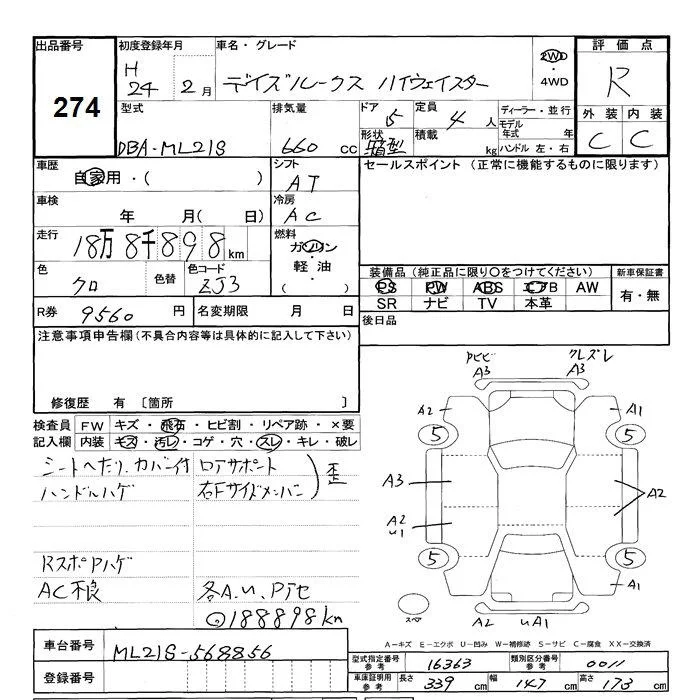 出品番号 274
初度登録年月 H 24年 2月
車名・グレード デイズルークス ハイウェイスター
2WD ・ 4WD
評価点 R
外装 C 内装 C
型式 DBA-ML21S
排気量 660 cc
ドア 5 定員 4 人
形状 箱型 積載 kg
ディーラー・並行
モデル年式 年
ハンドル 左・右
車歴 自家用・( )
シフト AT
セールスポイント (正常に機能するものに限ります)
車検 年 月( 日)
冷房 AC
走行 18万8千898 km
燃料 ガソリン・軽油・
色 クロ 色替 色コード ZJ3
装備品 (純正品に限り〇をつけてください) 新車保証書
PS PW ABS エアB AW 有・無
SR ナビ TV 本革
R券 9560 円 名変期限 月 日
後日品
注意事項申告欄(不具合内容等は具体的に記入して下さい)
修復歴 有 〔箇所 〕
検査員記入欄 FW キズ・飛石・ヒビ割・リペア跡・×要
内装 キズ・汚レ・コゲ・穴・スレ・キレ・破レ
シートヘタリ.カバー付 ロアサポート
ハンドルハゲ 右Fサイドメンバー 歪
RスポPハゲ
AC不良 各A.U.Pアセ
◎188898km
A3 A3
A2 A1
5 5
A3 A2
A2
U1
5 5
スペア A2 UA1 A1
A-キズ E-エクボ U-凹み W-補修跡 S-サビ C-腐食 XX-交換済
車台番号 ML21S-568856
登録番号
型式指定番号 参考 16363 類別区分番号 参考 0011
車庫証明用 参考 長さ 339 cm 幅 147 cm 高さ 173 cm